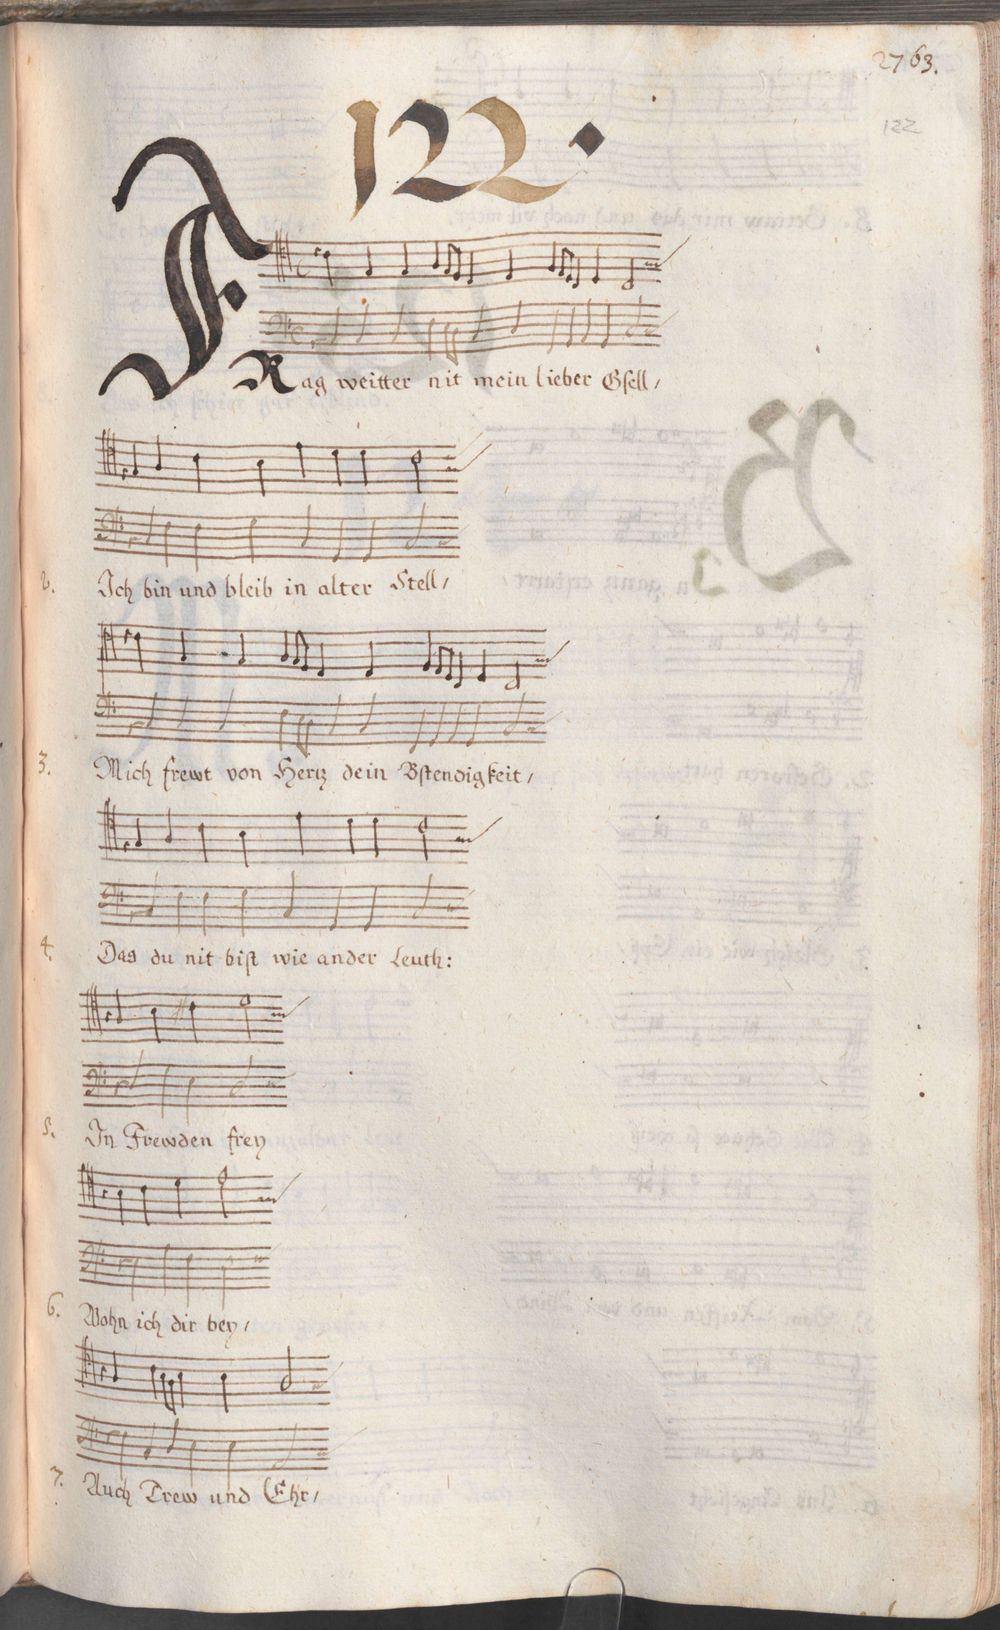 2763.
122
122.
FRag weitter nit mein lieber Gsell /
2. Ich bin und bleib in alter Stell /
3. Mich frewt von Hertz dein Bstendigkeit /
4. Das du nit bist wie ander Leuth:
5. In Frewden frey
6. Wohn ich dir bey /
7. Auch Trew und Ehr /